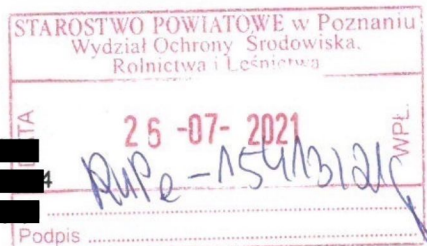 STAROSTWO POWIATOWE w Poznaniu
Wydział Ochrony Środowiska,
Rolnictwa i Leśnictwa
DATA
26 -07- 2021
WPŁ.
4
Podpis